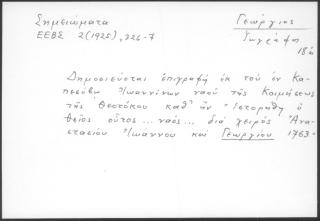 Σημειώματα
ΕΕΒΣ 2(1925), 326-7
Γεώργιος
Ζωγράφος
18 αι.
Δημοσιεύεται ἐπιγραφή ἐκ τοῦ ἐν Κα-
πεσόβῳ Ἰωαννίνων ναοῦ τῆς Κοιμήσεως
τῆς Θεοτόκου καθ' ἥν "Ἱστορήθη ὁ
θεῖος οὗτος ... ναός ... διά χειρός Ἀνα-
στασίου Ἰωάννου καί Γεωργίου 1763-